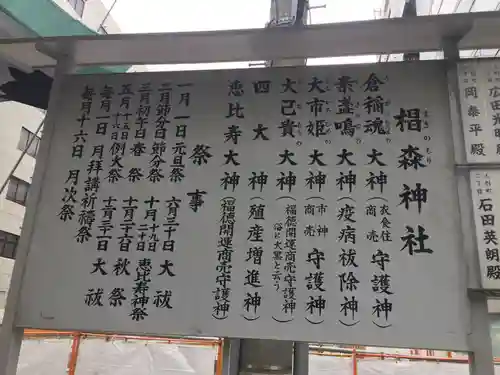 椙森神社
すぎのもり
倉稲魂大神(衣食住 商売 守護神)
素盞鳴大神(疫病祓除神)
大市姫大神(市神 商売 守護神)
大己貴大神(福徳開運商売守護神 俗に大黒と云う)
四大神(殖産増進神)
恵比寿大神(福徳開運商売守護神)
祭事
一月一日 元旦祭
二月節分日 節分祭
三月初午日 春祭
五月十五日十六日 例大祭
毎月一日 月拝講祈祷祭
毎月十六日 月次祭
六月三十日 大祓
十月十九日二十日 恵比寿神祭
秋祭
大祓
岡泰平殿
石田英朗殿